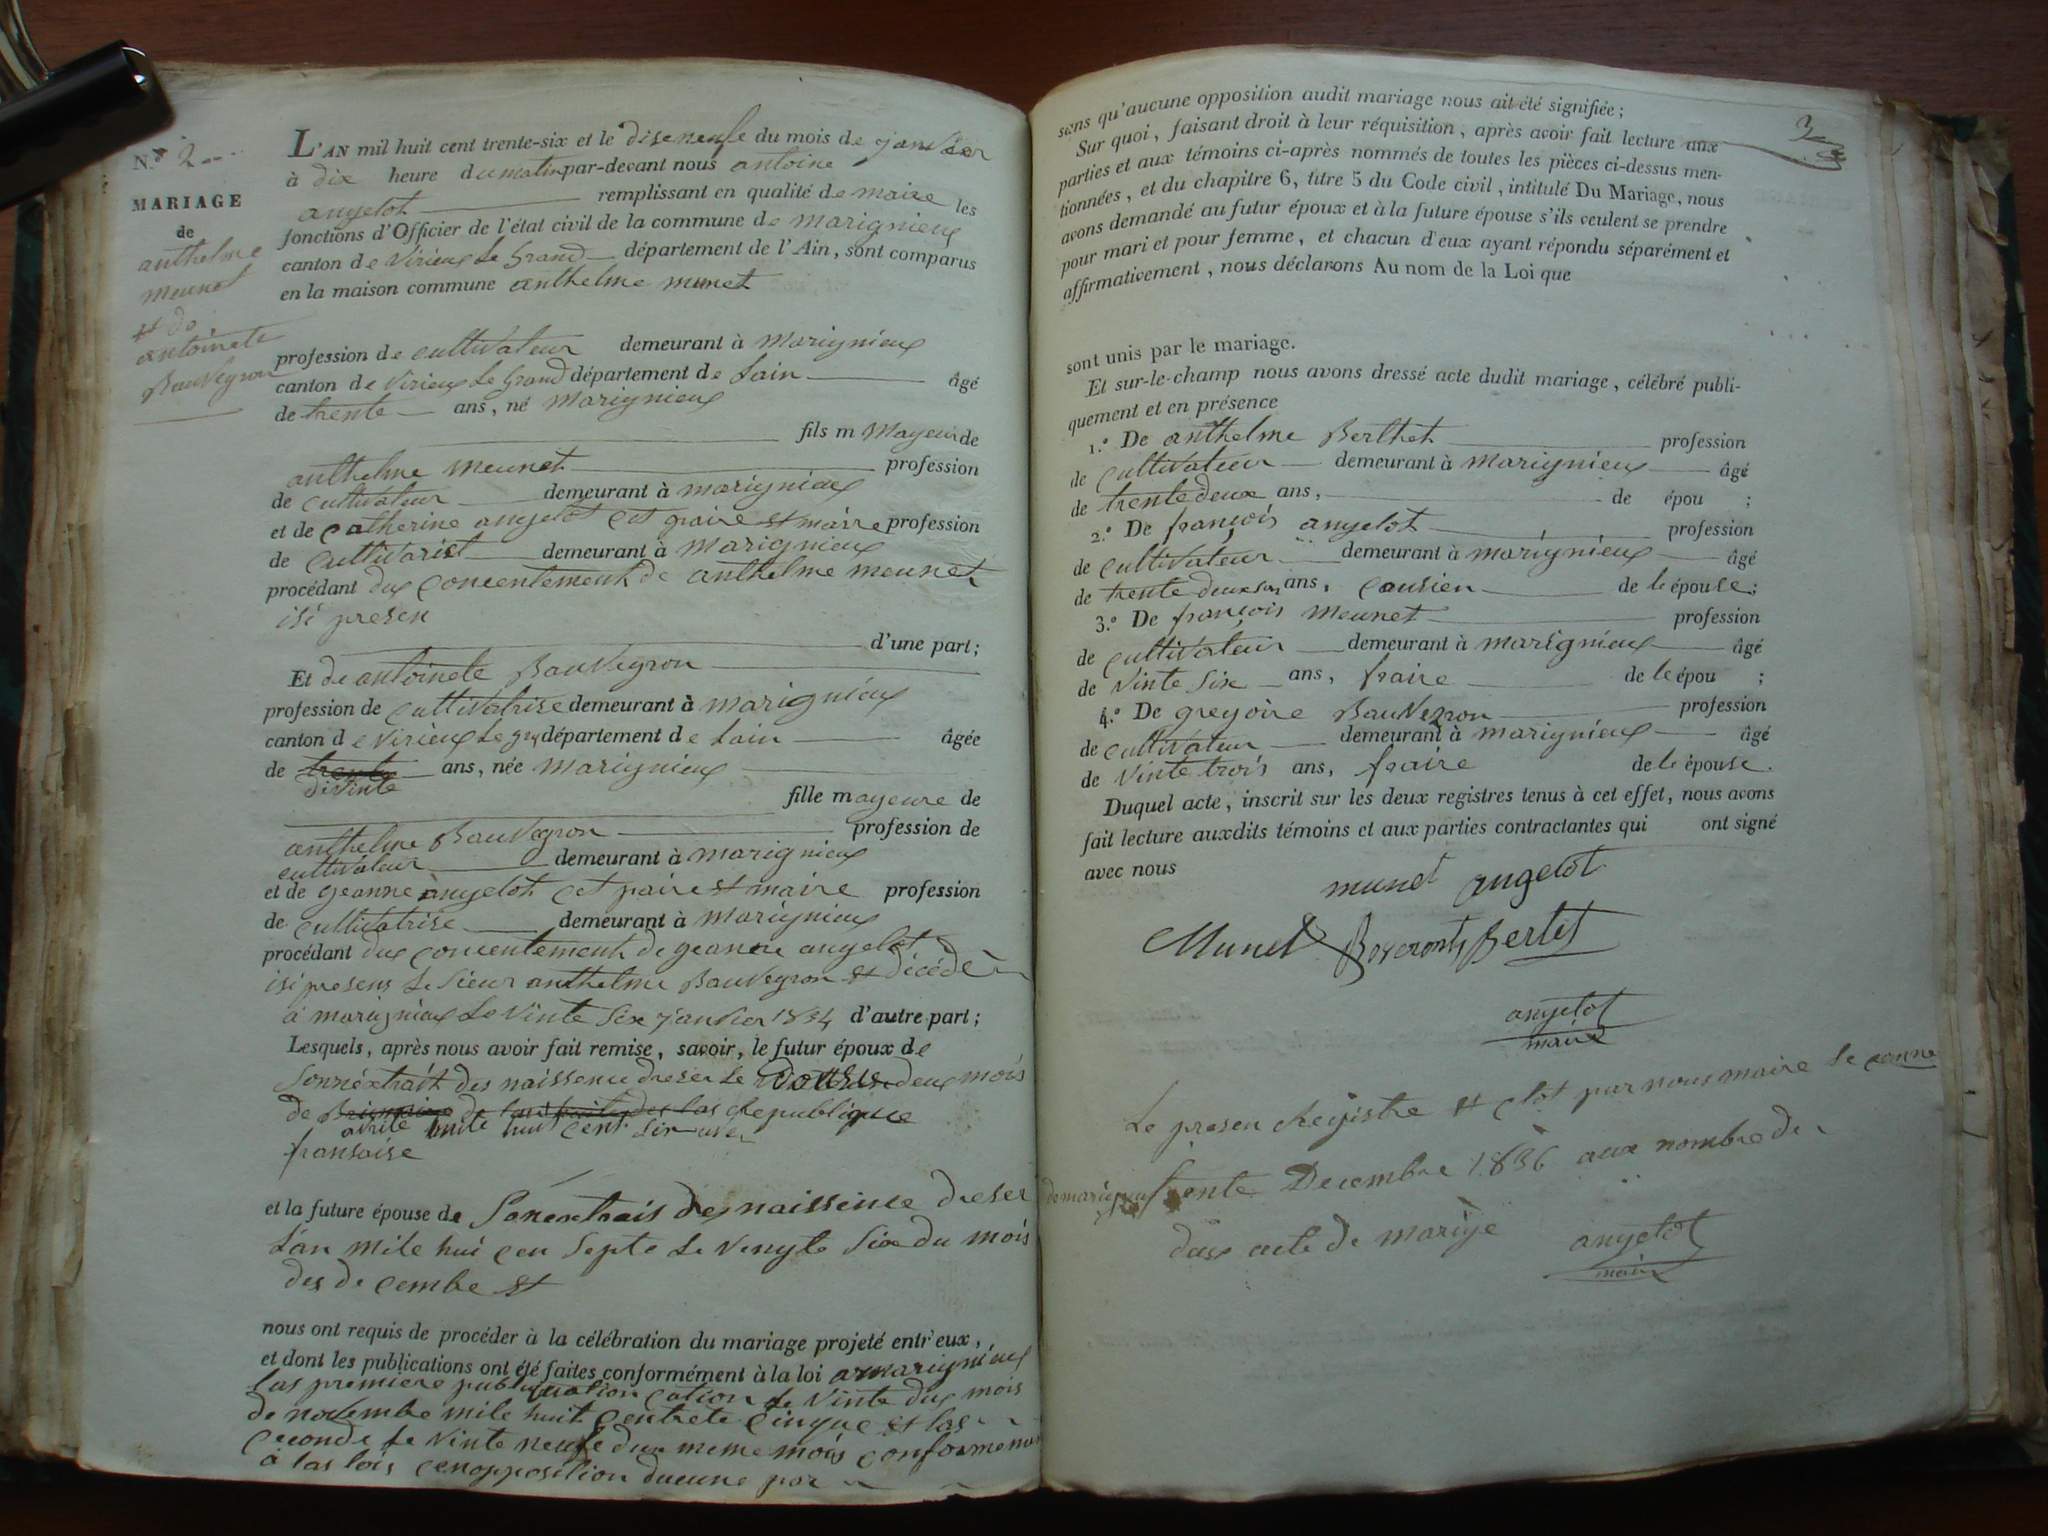 N.º 2
MARIAGE
de
anthelme
meunet
et de
antoinete
Bauveyron
L'AN mil huit cent trente-six et le diseneufe du mois de janvier
à dix heure du matin par-devant nous antoine
angelot remplissant en qualité de maire les
fonctions d'Officier de l'état civil de la commune de marignieux
canton de Virieux Le Grand département de l'Ain, sont comparus
en la maison commune anthelme munet
profession de cultivateur demeurant à Marignieux
canton de Virieux Le Grand département de Lain âgé
de trente ans, né Marignieux
fils m Mayeur de
anthelme meunet profession
de cultivateur demeurant à marignieux
et de catherine angelot cet paire et maire profession
de demeurant à Marignieux
procédant dux concentement de anthelme meunet
isi presen
d'une part;
Et de antoinete Bauveyron
profession de cultivatrise demeurant à marignieux
canton de Virieux Le département de Lain âgée
de trente ans, née Marignieux
de vinte
fille mayeure de
anthelme Bauveyron profession de
cultivateur demeurant à marignieux
et de geanne angelot cet paire et maire profession
de cultivatrise demeurant à Marignieux
procédant dux concentement de geanne angelot
isi presens Le Sieur anthelme Bauveyron et décédè
à marignieux Le Vinte Six janvier 1834 d'autre part;
Lesquels, après nous avoir fait remise, savoir, le futur époux de
Sonnéxtrait des naissence dreser Le deux mois
de Republique
fransaise
et la future épouse de Sonextrais des naissence dreser
L'an mile hui cen Septe Le Vengte Six du mois
des de cembe et
nous ont requis de procéder à la célébration du mariage projeté entr'eux,
et dont les publications ont été faites conformément à la loi a marignieux
las premiere cation Le Vinte dux mois
de novembre mile huit centrete cinque et las
ceconde Le Vinte neufe dux meme mois conformemen
à las lois cenopposition ducune par
3
sans qu'aucune opposition audit mariage nous ait été signifiée;
Sur quoi, faisant droit à leur réquisition, après avoir fait lecture aux
parties et aux témoins ci-après nommés de toutes les pièces ci-dessus men-
tionnées, et du chapitre 6, titre 5 du Code civil, intitulé Du Mariage, nous
avons demandé au futur époux et à la future épouse s'ils veulent se prendre
pour mari et pour femme, et chacun d'eux ayant répondu séparément et
affirmativement, nous déclarons Au nom de la Loi que
sont unis par le mariage.
Et sur-le-champ nous avons dressé acte dudit mariage, célébré publi-
quement et en présence
1.º De anthelme Berthet profession
de cultivateur demeurant à Marignieux âgé
de trente deux ans, de épou ;
2.º De françois angelot profession
de cultivateur demeurant à marignieux âgé
de trente deux ans, cousien de le épouse;
3.º De françois Meunet profession
de cultivateur demeurant à marignieux âgé
de Vinte Six ans, fraire de le épou ;
4.º De gregoire Bauveyron profession
de cultivateur demeurant à marignieux âgé
de Vinte trois ans, fraire de le épouse.
Duquel acte, inscrit sur les deux registres tenus à cet effet, nous avons
fait lecture auxdits témoins et aux parties contractantes qui ont signé
avec nous
munet angelot
Munet Bertet
angelot
maire
Le presen Registre et clot par nous maire de
de trente Decembre 1836 aux nombre de
dux acte de mariye angelot
maire